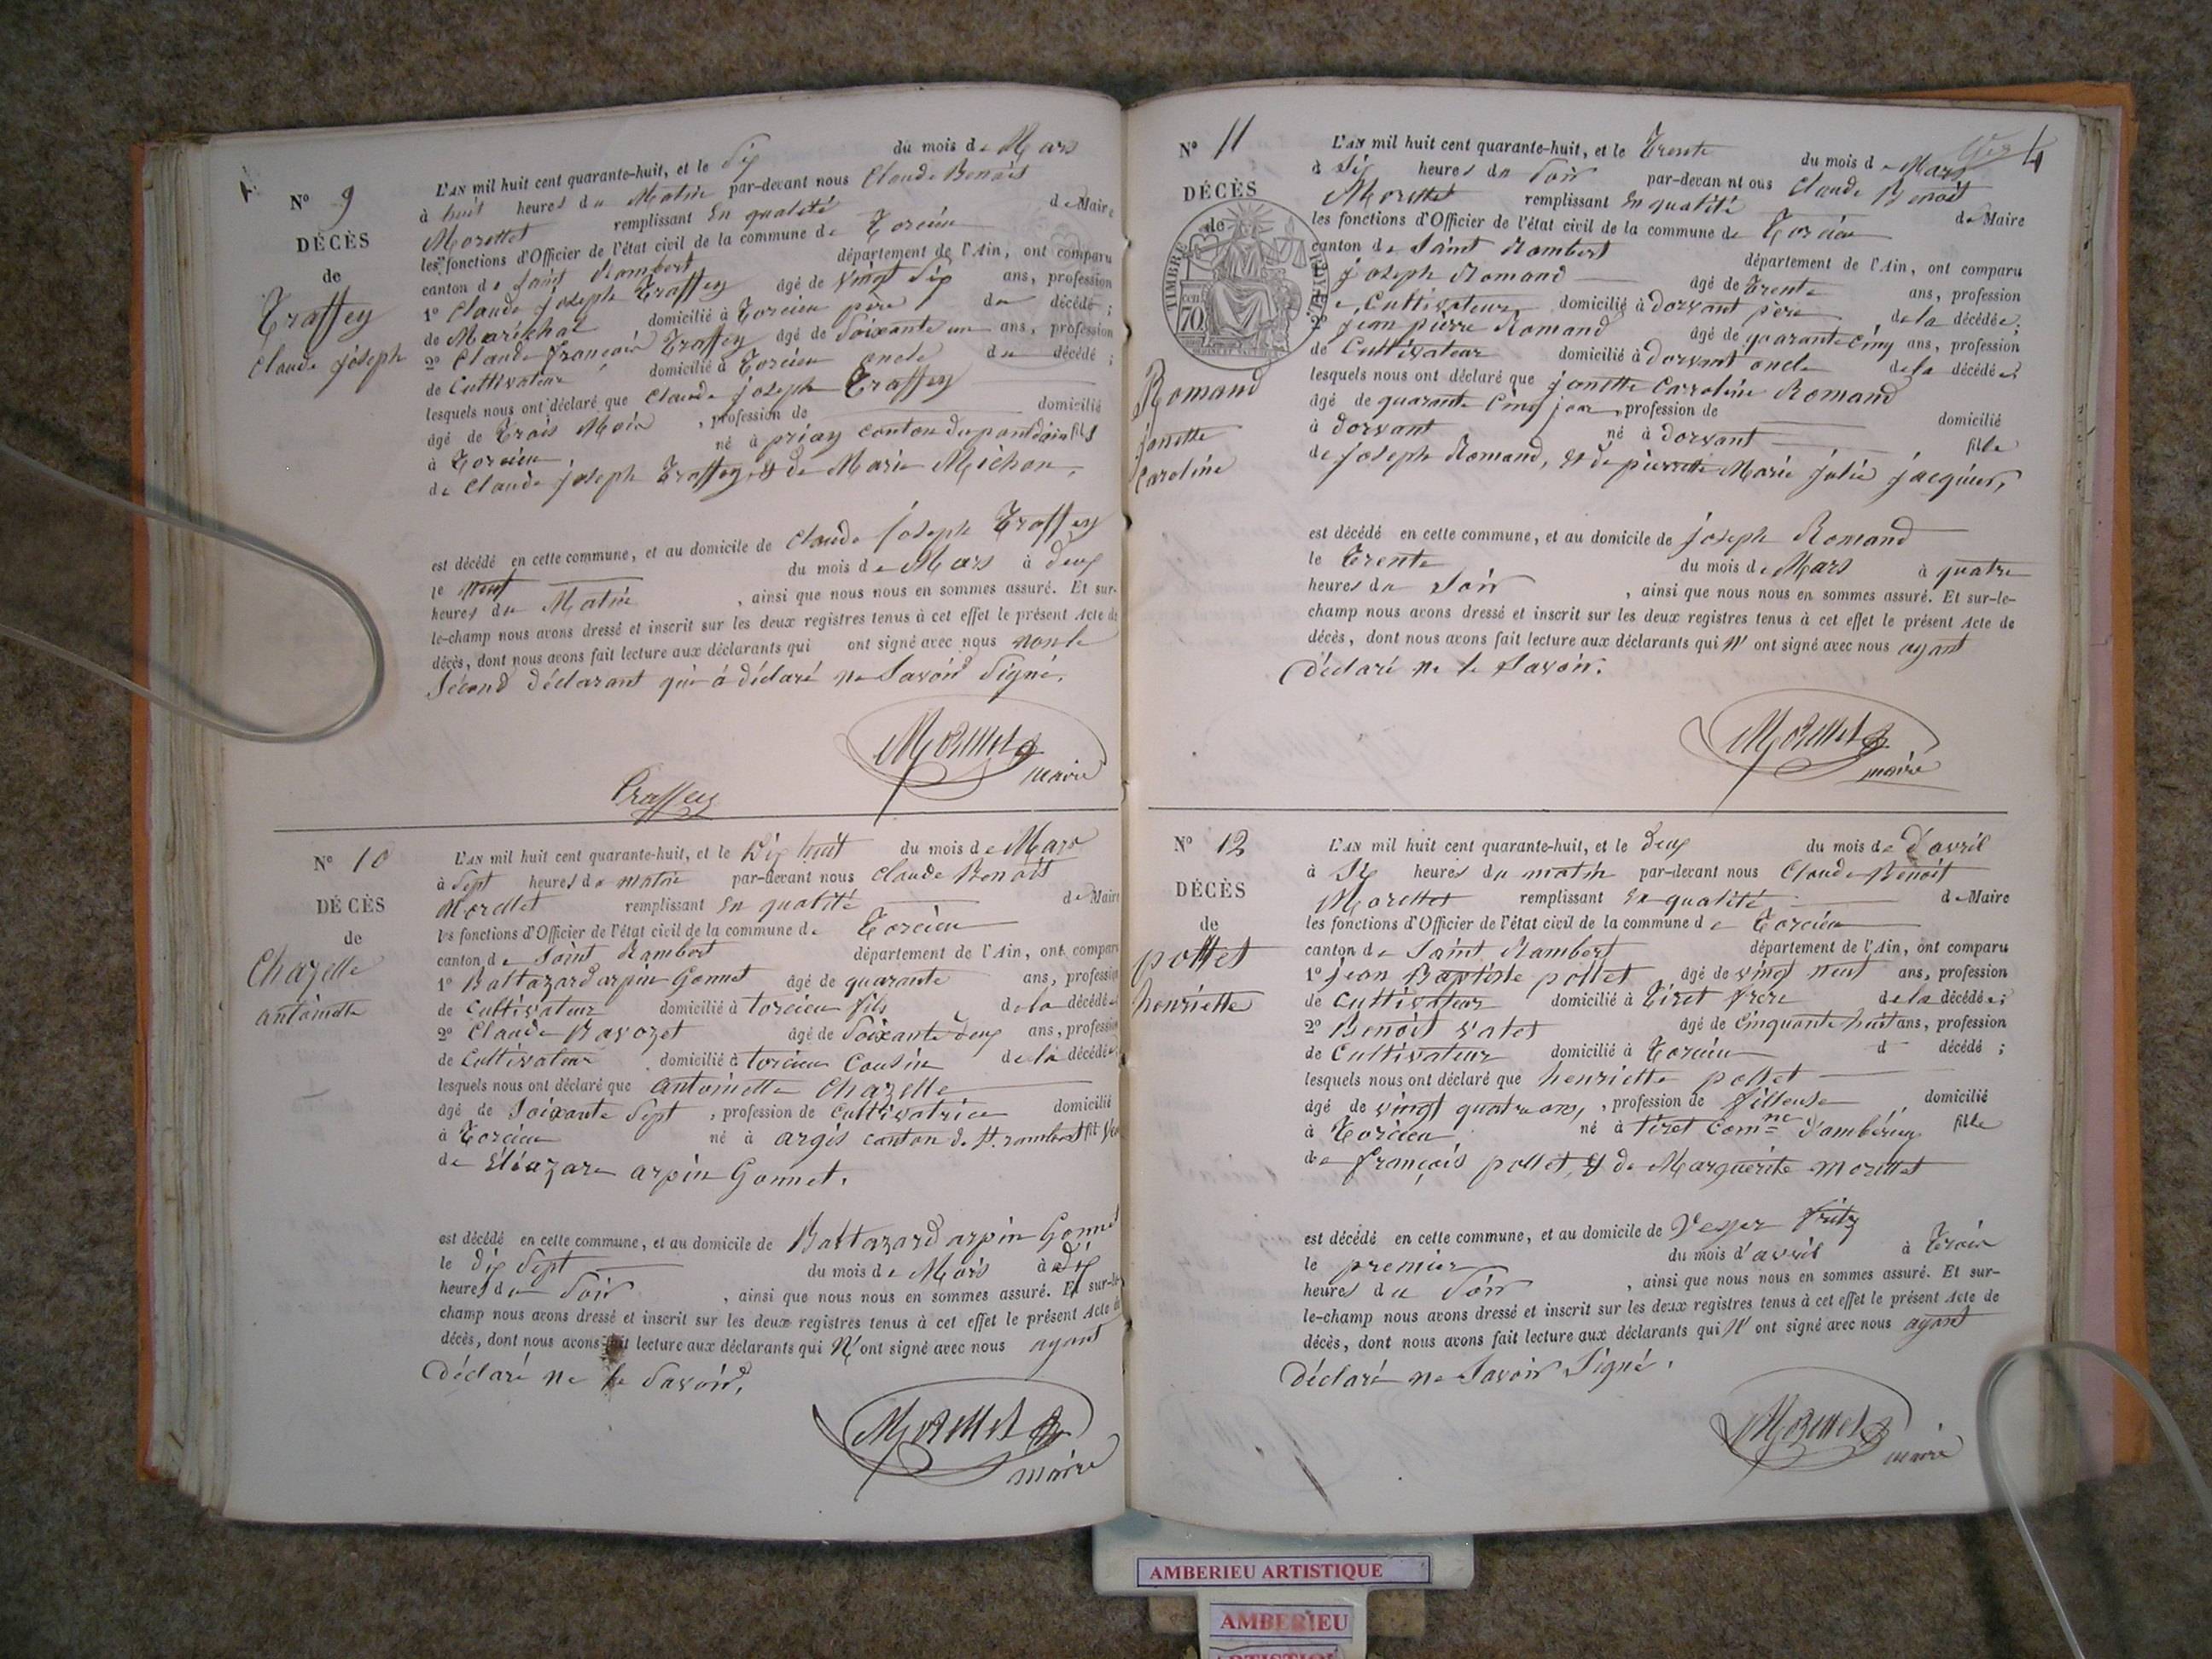 N° 9
DÉCÈS
de
Traffey
Claude joseph
L'AN mil huit cent quarante-huit, et le Dix du mois de Mars
à huit heures du Matin par-devant nous Claude Benoit
Morettet remplissant En qualité de Maire
les fonctions d'Officier de l'état civil de la commune de Torcieu
canton de Saint Rambert département de l'Ain, ont comparu
1° Claude joseph Traffey âgé de vingt Six ans, profession
de Maréchal domicilié à Torcieu père du décédé ;
2° Claude françois Traffey âgé de Soixante un ans, profession
de Cultivateur domicilié à Torcieu oncle du décédé ;
lesquels nous ont déclaré que Claude joseph Traffey
âgé de Trois Mois , profession de domicilié
à Torcieu né à priay canton du pont dain fils
de Claude joseph Traffey, et de Marie Michon,
est décédé en cette commune, et au domicile de Claude Joseph Traffey
le neuf du mois de Mars à deux
heures du Matin , ainsi que nous nous en sommes assuré. Et sur-
le-champ nous avons dressé et inscrit sur les deux registres tenus à cet effet le présent Acte de
décès, dont nous avons fait lecture aux déclarants qui ont signé avec nous non le
Second déclarant qui à déclaré ne Savoir Signé.
Morettet
maire
Traffey
N° 10
DÉCÈS
de
Chazelle
antoinette
L'AN mil huit cent quarante-huit, et le Dix huit du mois de Mars
à Sept heures du matin par-devant nous Claude Benoit
Morettet remplissant En qualité de Maire
les fonctions d'Officier de l'état civil de la commune de Torcieu
canton de Saint Rambert département de l'Ain, ont comparu
1° Baltazard arpin Gonnet âgé de quarante ans, profession
de Cultivateur domicilié à torcieu fils de la décédée
2° Claude Ravozet âgé de Soixante deux ans, profession
de Cultivateur domicilié à torcieu Cousin de la décédée
lesquels nous ont déclaré que antoinette Chazelle
âgé de Soixante Sept , profession de Cultivatrice domicilié
à Torcieu né à argis canton de St. rambert
de Eléazare arpin Gonnet.
est décédé en cette commune, et au domicile de Baltazard arpin Gonnet
le dix Sept du mois de Mars à dix
heures du Soir , ainsi que nous nous en sommes assuré. Et sur-le-
champ nous avons dressé et inscrit sur les deux registres tenus à cet effet le présent Acte de
décès, dont nous avons fait lecture aux déclarants qui N' ont signé avec nous ayant
Déclaré ne le Savoir.
Morettet
maire
N° 11
DÉCÈS
de
TIMBRE ROYAL
70
Romand
jonette
Caroline
4
L'AN mil huit cent quarante-huit, et le Trente du mois de Mars
à Six heures du Soir par-devan nt ous Claude Benoit
Morettet remplissant En qualité de Maire
les fonctions d'Officier de l'état civil de la commune de Torcieu
canton de Saint Rambert département de l'Ain, ont comparu
joseph Romand âgé de Trente ans, profession
de Cultivateur domicilié à dorvant père de la décédée;
2° jean pierre Romand âgé de quarante Cinq ans, profession
de Cultivateur domicilié à dorvant oncle de la décédée
lesquels nous ont déclaré que jonette Carroline Romand
âgé de quarante Cinq jour , profession de domicilié
à dorvant né à dorvant fille
de joseph Romand, et de pierrette Marie julie jacquier,
est décédé en cette commune, et au domicile de joseph Romand
le Trente du mois de Mars à quatre
heures du Soir , ainsi que nous nous en sommes assuré. Et sur-le-
champ nous avons dressé et inscrit sur les deux registres tenus à cet effet le présent Acte de
décès, dont nous avons fait lecture aux déclarants qui N' ont signé avec nous ayant
déclaré ne le Savoir.
Morettet
maire
N° 12
DÉCÈS
de
pottet
henriette
L'AN mil huit cent quarante-huit, et le deux du mois de d'avril
à Six heures du matin par-devant nous Claude Benoit
Morettet remplissant En qualité de Maire
les fonctions d'Officier de l'état civil de la commune de Torcieu
canton de Saint Rambert département de l'Ain, ont comparu
1° jean Baptiste pottet âgé de vingt neuf ans, profession
de Cultivateur domicilié à Tiret frere de la décédée;
2° Benoit vatet âgé de Cinquante huit ans, profession
de Cultivateur domicilié à Torcieu d décédé ;
lesquels nous ont déclaré que henriette pottet
âgé de vingt quatre ans, , profession de filleuse domicilié
à Torcieu né à tiret Comne d'ambérieu fille
de françois pottet, et de Marguerite morettet
est décédé en cette commune, et au domicile de Vesper fritz
le premier du mois d'avril à Trois
heures du Soir , ainsi que nous nous en sommes assuré. Et sur-
le-champ nous avons dressé et inscrit sur les deux registres tenus à cet effet le présent Acte de
décès, dont nous avons fait lecture aux déclarants qui N' ont signé avec nous ayant
Déclaré ne Savoir Signé.
Morettet
maire
AMBERIEU ARTISTIQUE
AMBERIEU
ARTISTIQUE